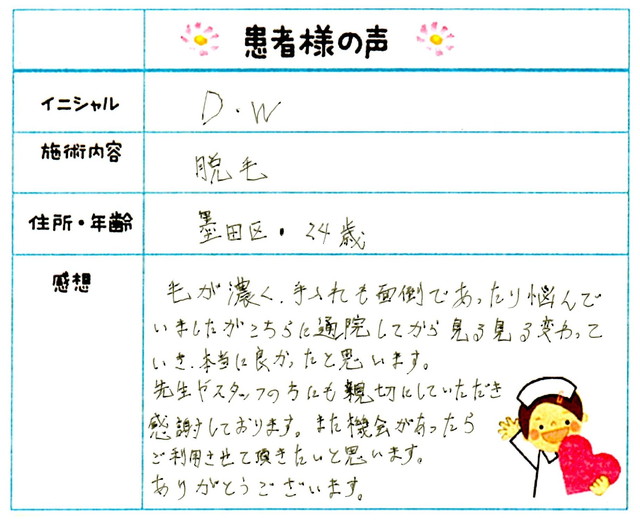 患者様の声
イニシャル
D・W
施術内容
脱毛
住所・年齢
墨田区・24歳
感想
毛が濃く、手入れも面倒であったり悩んで
いましたがこちらに通院してから見る見る変わって
いき、本当に良かったと思います。
先生やスタッフの方にも親切にしていただき
感謝しております。また機会があったら
ご利用させて頂きたいと思います。
ありがとうございます。